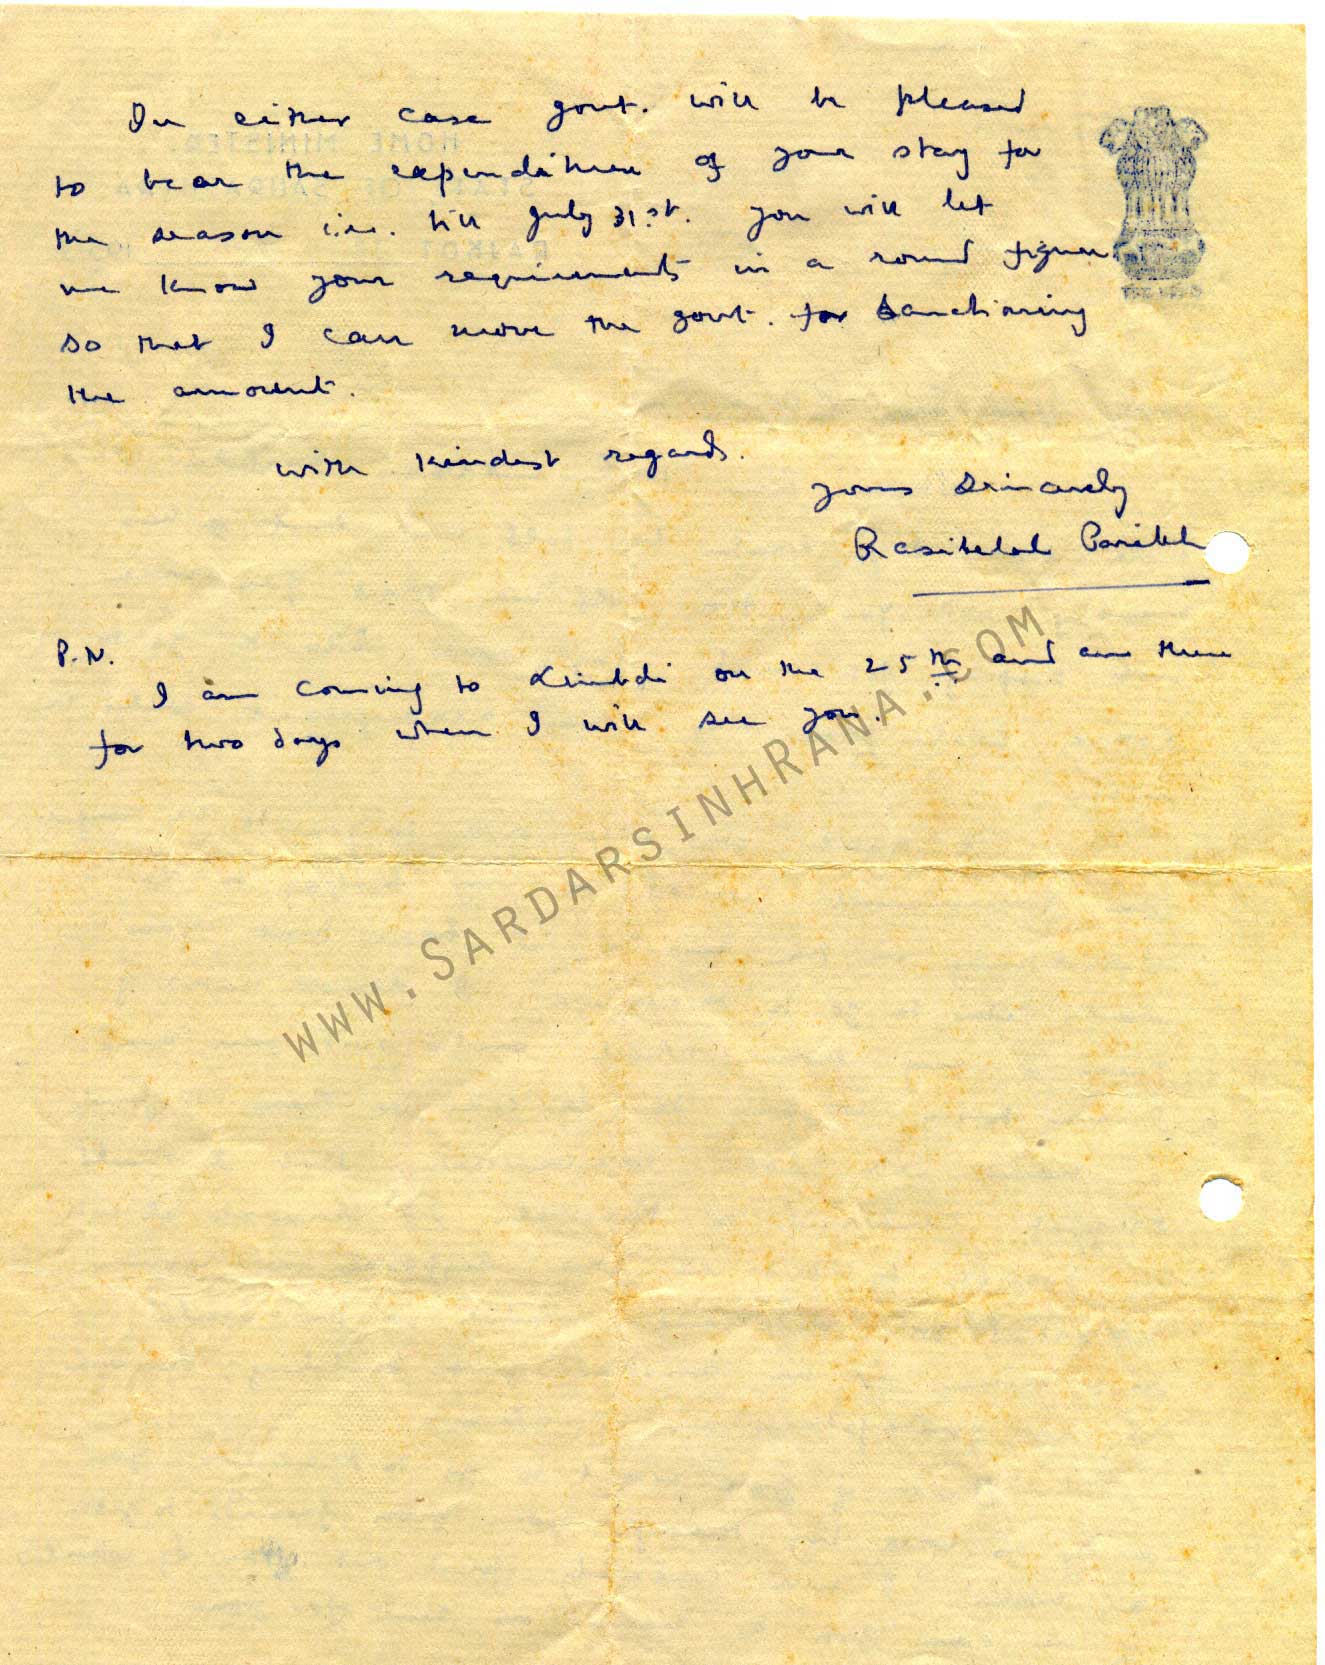 In either case govt. will be pleased
to bear the expenditure of your stay for
the season i.e. till July 31st. You will let
me know your requirements in a round figure
so that I can move the govt. for sanctioning
the amount.
with kindest regards.
yours sincerely
Rasiklal Parikh
P.N.
I am coming to Limbdi on the 25th and am there
for two days when I will see you.
www.SARDARSINHRANA.COM
HOME MINISTER.
RAJKOT